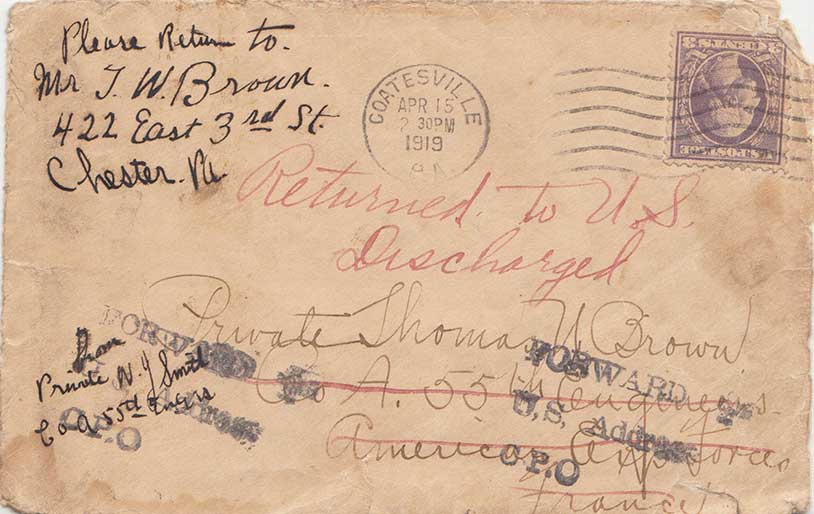 Please Return to.
Mr T. W. Brown.
422 East 3rd St.
Chester. Pa.
COATESVILLE
APR 15
2 30PM
1919
PA.
Returned to U.S.
Discharged
Private Thomas W Brown
Co A. 55th Engineers.
American Exp Forces
France
From
Private N. J Smith
Co A 55th Engrs
FORWARD
Address
C.P.O
FORWARD
U.S. Address
C.P.O